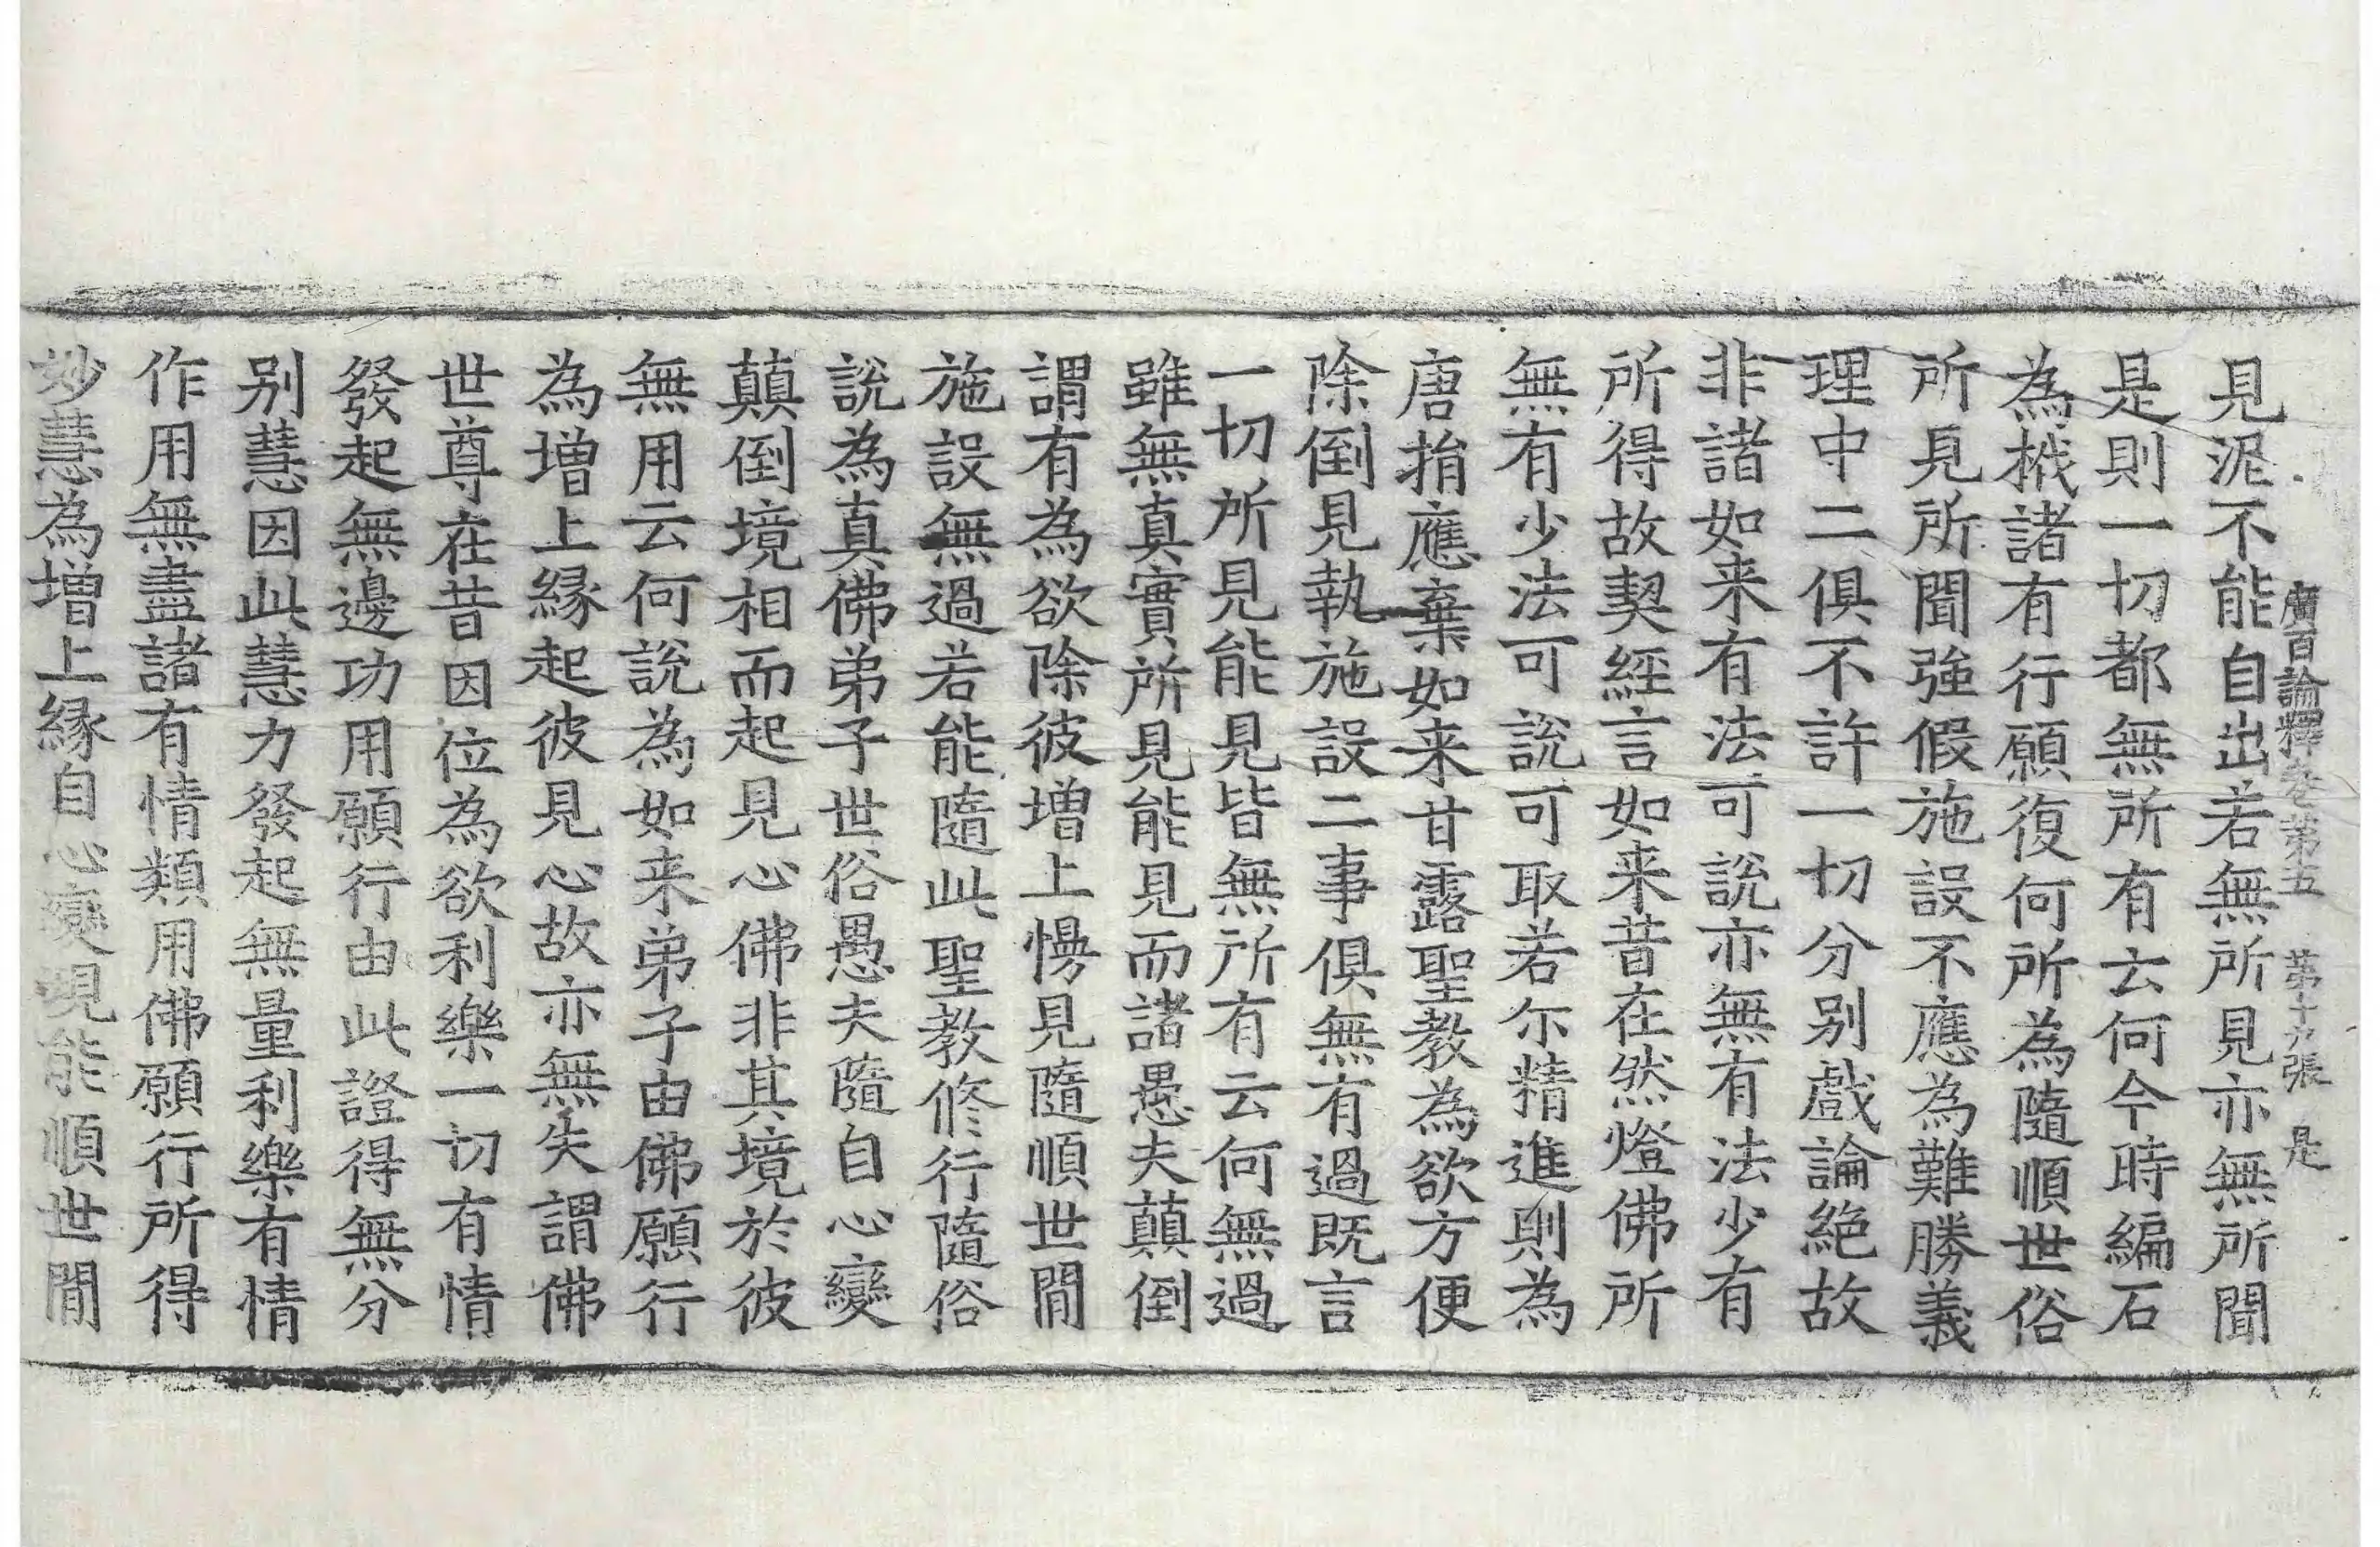 廣百論釋卷第五 第十九張 是
見泥不能自出若無所見亦無所聞
是則一切都無所有云何今時編石
為栰諸有行願復何所為隨順世俗
所見所聞強假施設不應為難勝義
理中二俱不許一切分別戲論絕故
非諸如来有法可說亦無有法少有
所得故契經言如来昔在然燈佛所
無有少法可說可取若尒精進則為
唐捐應棄如来甘露聖教為欲方便
除倒見執施設二事俱無有過既言
一切所見能見皆無所有云何無過
雖無真實所見能見而諸愚夫顛倒
謂有為欲除彼增上慢見隨順世間
施設無過若能隨此聖教修行隨俗
說為真佛弟子世俗愚夫隨自心變
顛倒境相而起見心佛非其境於彼
無用云何說為如来弟子由佛願行
為增上緣起彼見心故亦無失謂佛
世尊在昔因位為欲利樂一切有情
發起無邊功用願行由此證得無分
別慧因此慧力發起無量利樂有情
作用無盡諸有情類用佛願行所得
妙慧為增上緣自心變現能順世間